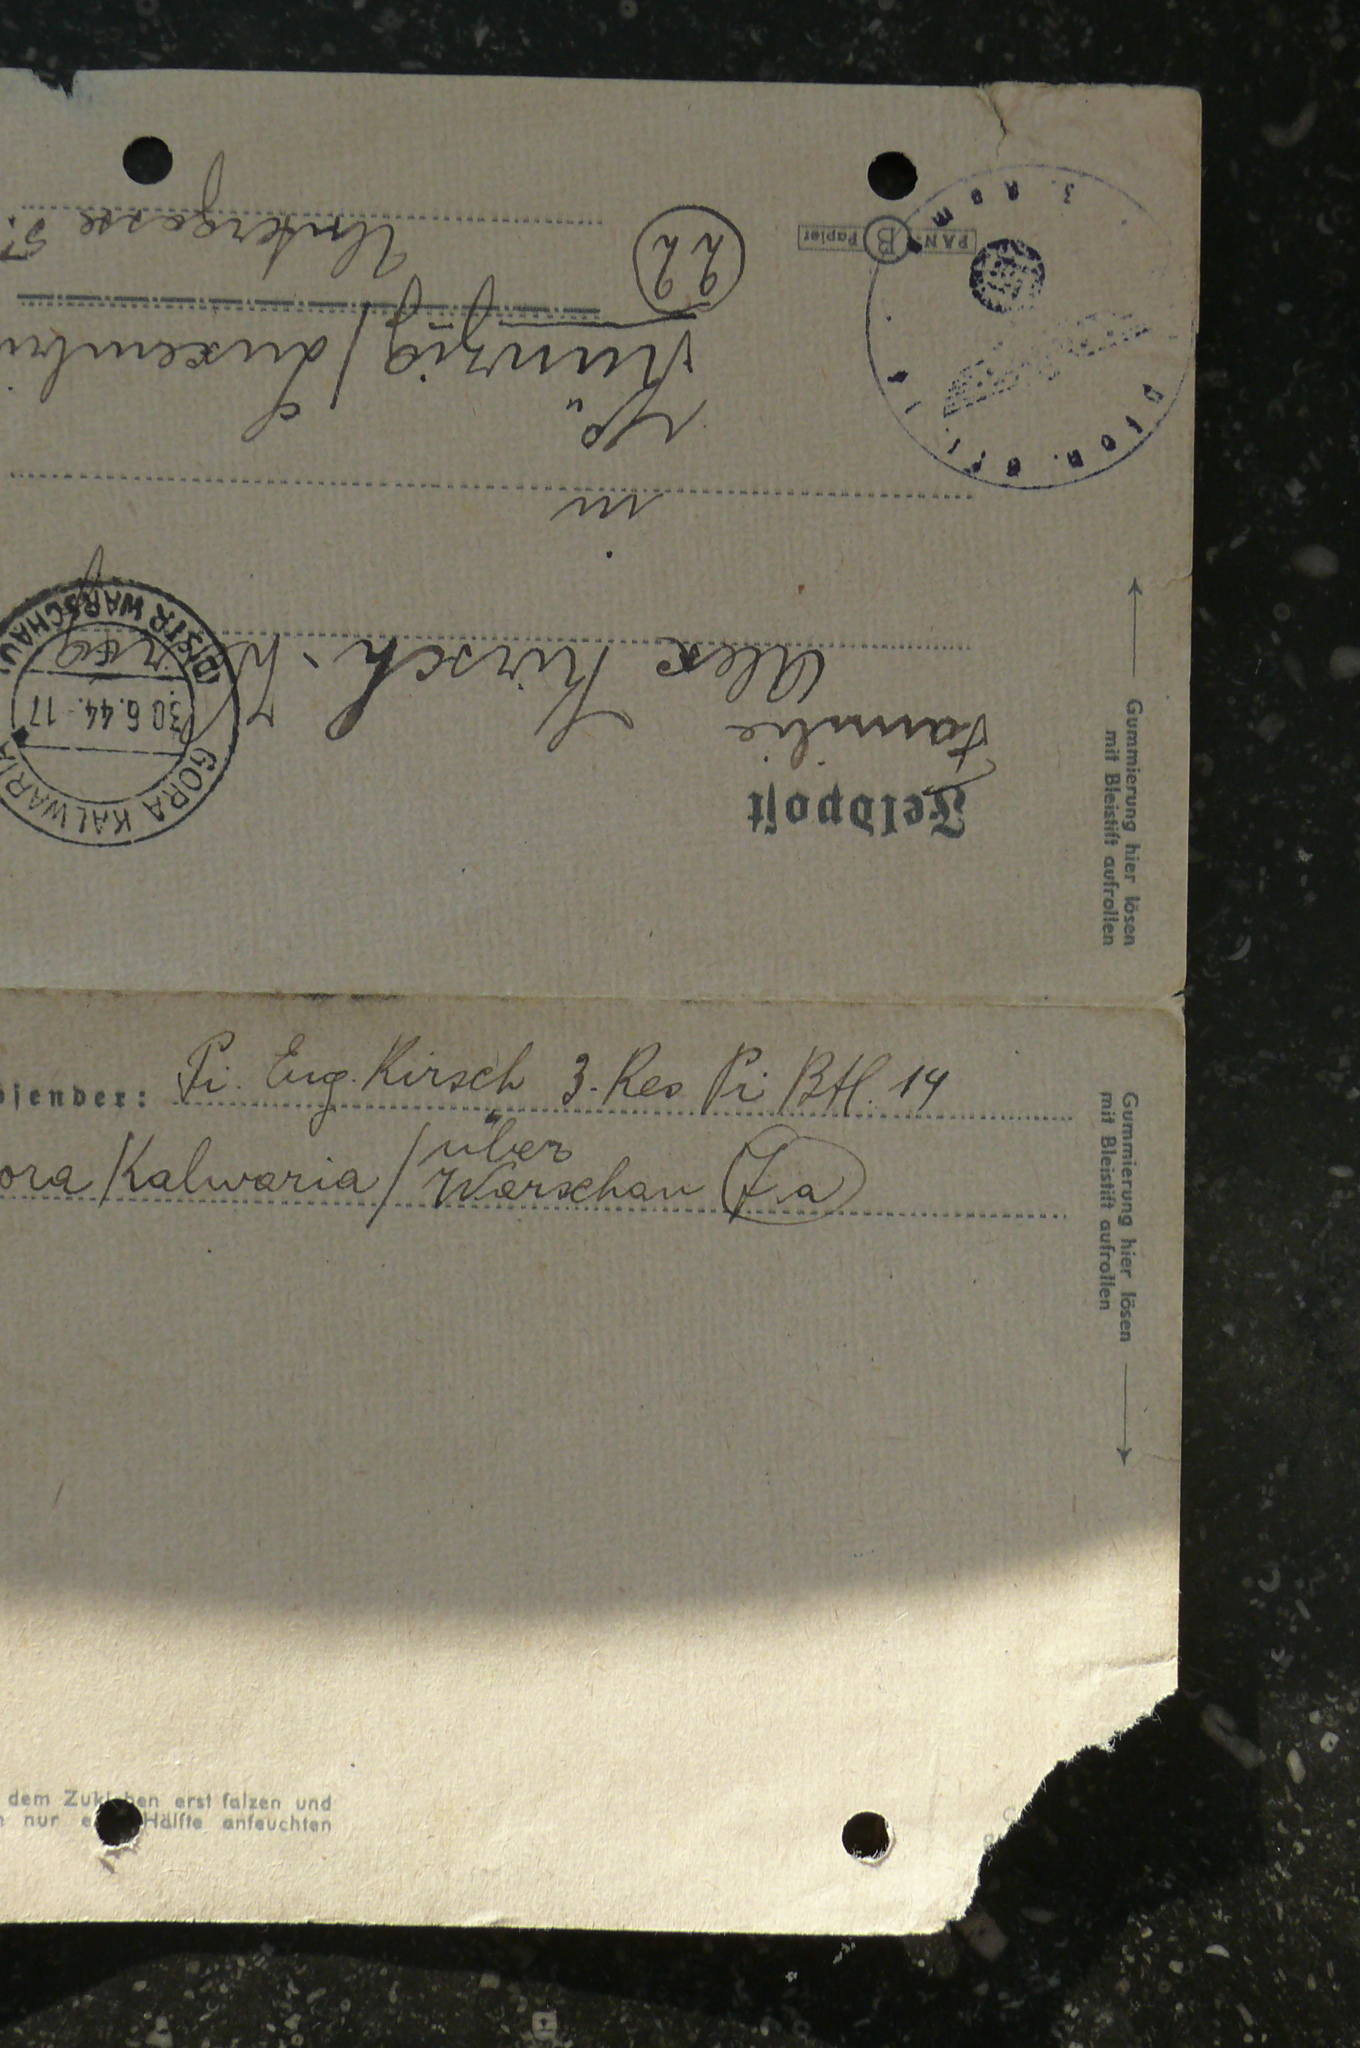 Feldpost
Familie
Alex Kirsch-
in
Küntzig/Luxembu
Untergasse 5.
22
PAN B Papier
GORA KALWARIA
(DISTR WARSCHAU)
30.6.44.-17
Gummierung hier lösen
mit Bleistift aufrollen
bsender: Pi. Eug. Kirsch 3. Res Pi Btl. 14
ora/Kalwaria/ über
Warschau (7a)
Gummierung hier lösen
mit Bleistift aufrollen
dem Zukleben erst falzen und
nur e Hälfte anfeuchten